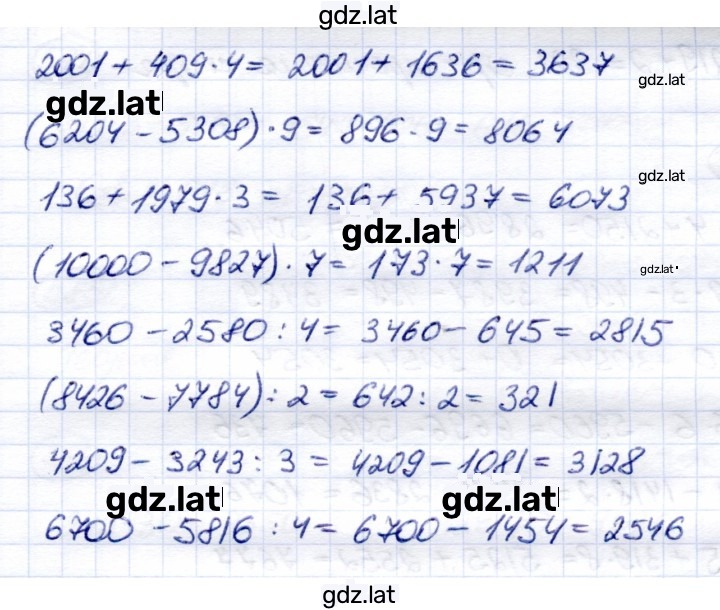 gdz.lat
2001 + 409 · 4 = 2001 + 1636 = 3637
gdz.lat
gdz.lat
(6204 - 5308) · 9 = 896 · 9 = 8064
gdz.lat
136 + 1979 · 3 = 136 + 5937 = 6073
gdz.lat
(10000 - 9827) · 7 = 173 · 7 = 1211
gdz.lat
3460 - 2580 : 4 = 3460 - 645 = 2815
(8426 - 7784) : 2 = 642 : 2 = 321
4209 - 3243 : 3 = 4209 - 1081 = 3128
gdz.lat gdz.lat
6700 - 5816 : 4 = 6700 - 1454 = 2546
gdz.lat